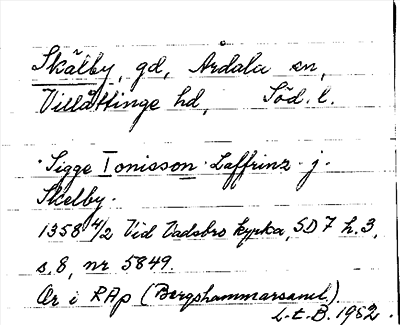 Skälby, gd, Årdala sn,
Villåttinge hd, Söd. l.
"Sigge Tonisson Laffrinz j.
Skelby.
1358 4/2 Vid Vadsbro kyrka, SD 7 h. 3,
s. 8, nr 5849.
Or i RAp (Bergshammarsaml.).
L-t. B. 1982.